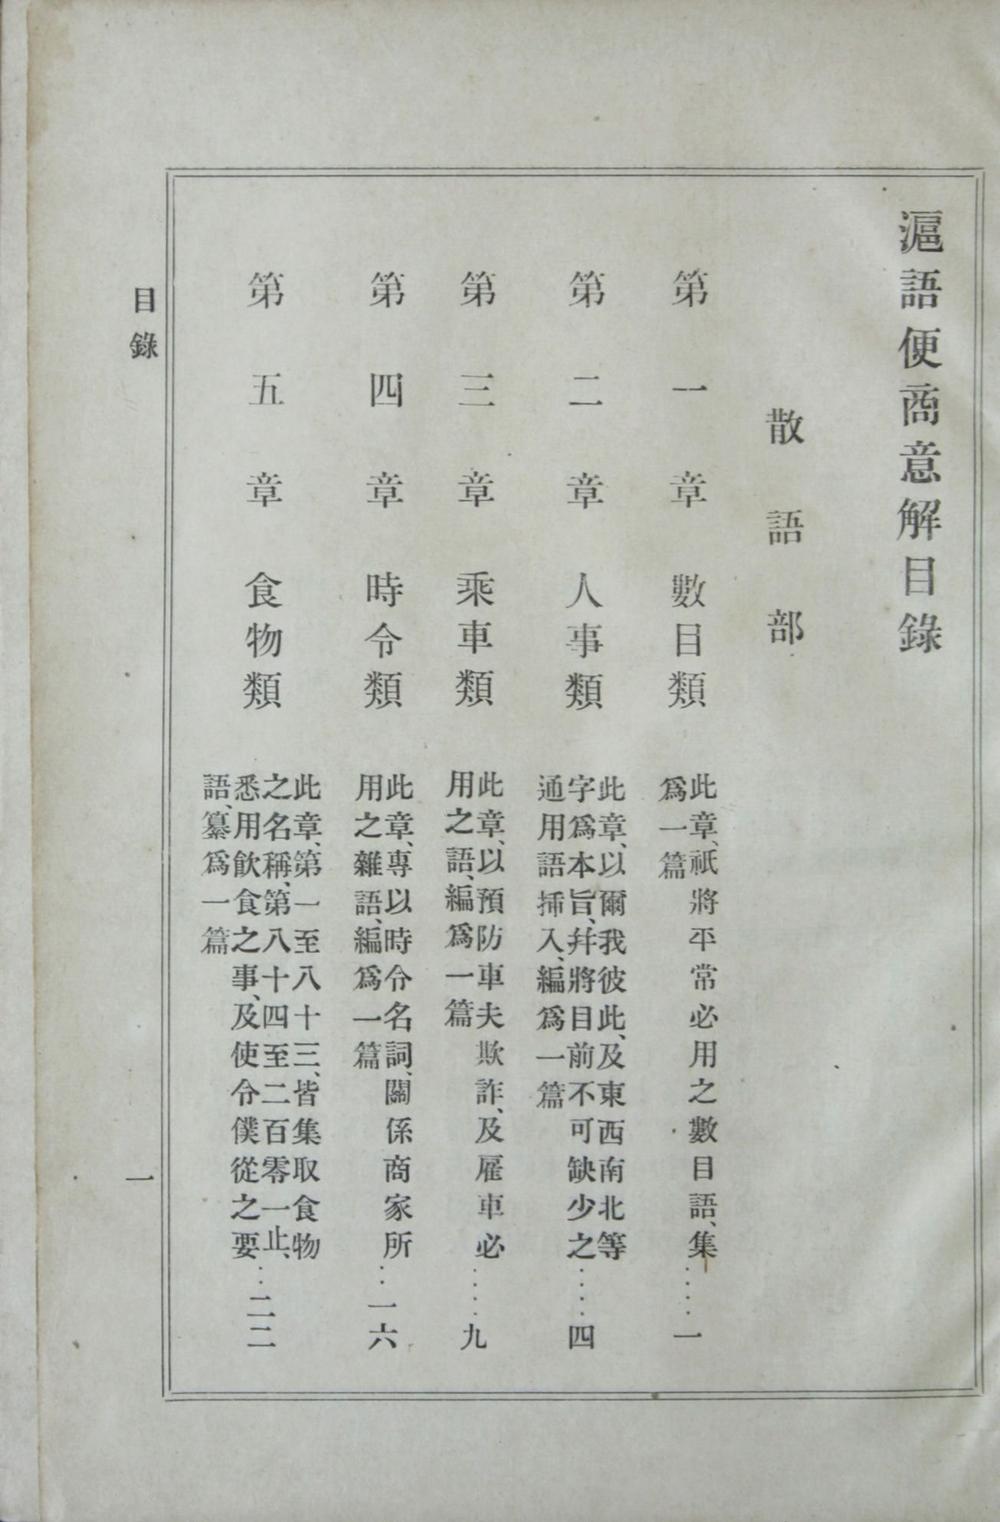 滬語便商意解目錄
散語部
第一章 數目類
此章、祇將平常必用之數目語、集
爲一篇
……一
第二章 人事類
此章、以爾我彼此、及東西南北等
字爲本旨、幷將目前不可缺少之
通用語揷入、編爲一篇
……四
第三章 乘車類
此章、以預防車夫欺詐、及雇車必
用之語、編爲一篇
……九
第四章 時令類
此章、專以時令名詞、關係商家所
用之雜語、編爲一篇
…一六
第五章 食物類
此章、第一至八十三、皆集取食物
之名稱、第八十四至二百零一止、
悉用飮食之事、及使令僕從之要
語、纂爲一篇
…二二
目錄
一